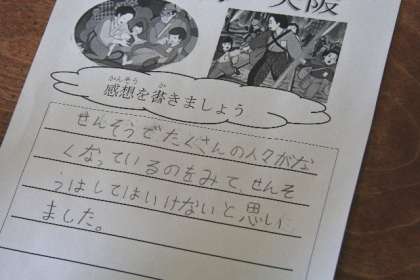 大阪
かんそう か
感想を書きましょう
せんそうで、たくさんの人々がな
くなっているのをみて、せんそ
うはしてはいけないと思い
ました。